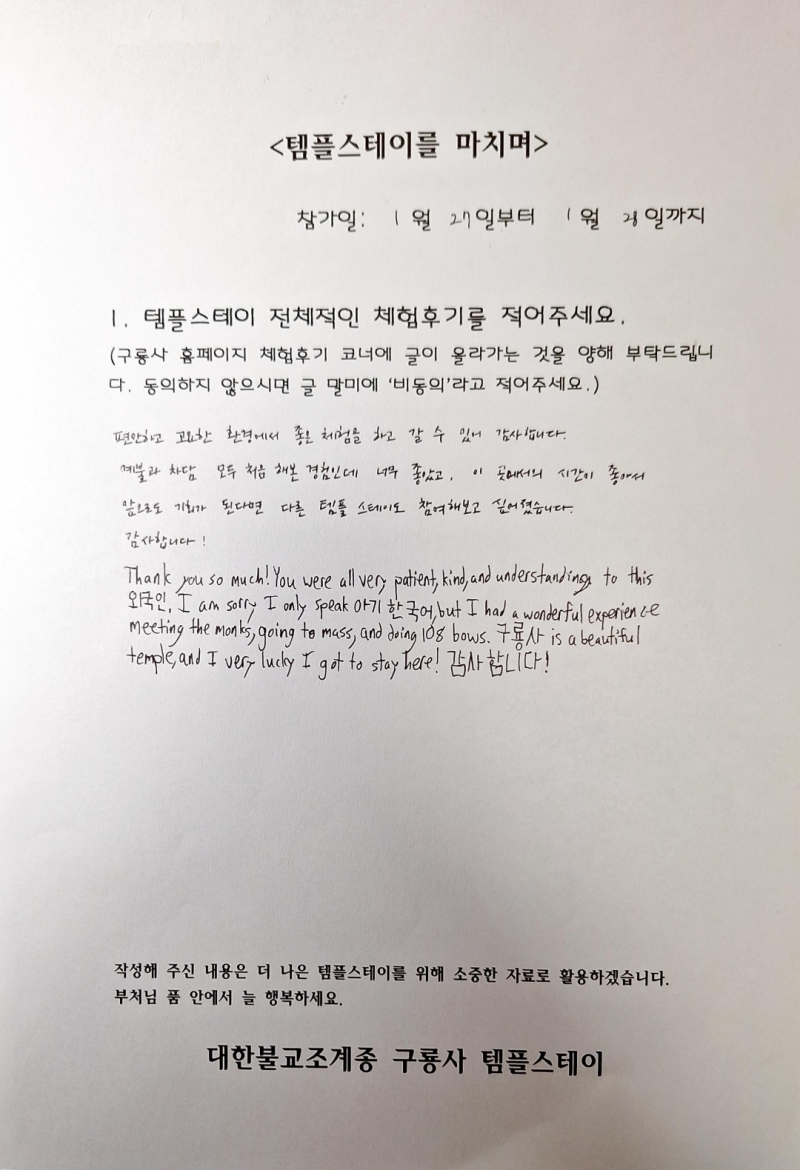 <템플스테이를 마치며>
참가일: 1월 27일부터 1월 28일까지
1. 템플스테이 전체적인 체험후기를 적어주세요.
(구룡사 홈페이지 체험후기 코너에 글이 올라가는 것을 양해 부탁드립니
다. 동의하지 않으시면 글 말미에 '비동의'라고 적어주세요.)
편안하고 고요한 환경에서 좋은 체험을 하고 갈 수 있어 감사합니다.
예불과 차담 모두 처음 해본 경험인데 너무 좋았고, 이 곳에서의 시간이 좋아서
앞으로도 기회가 된다면 다른 템플 스테이도 참여해보고 싶어졌습니다.
감사합니다!
Thank you so much! You were all very patient, kind, and understanding to this
외국인. I am sorry I only speak 아기 한국어, but I had a wonderful experience
meeting the monks, going to mass, and doing 108 bows. 구룡사 is a beautiful
temple, and I very lucky I got to stay here! 감사합니다!
작성해 주신 내용은 더 나은 템플스테이를 위해 소중한 자료로 활용하겠습니다.
부처님 품 안에서 늘 행복하세요.
대한불교조계종 구룡사 템플스테이